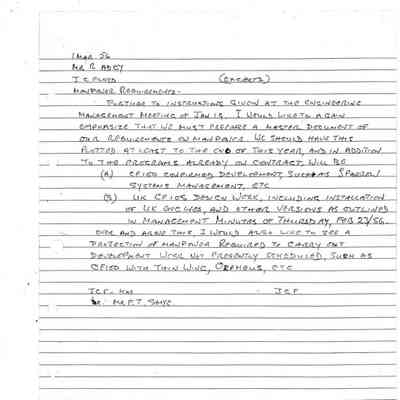 1 Mar 56
Mr R Adey
J C Floyd (Extracts)
Manpower Requirements -
Further to instructions given at the Engineering
Management Meeting of Jan 13, I would like to again
emphasize that we must prepare a master document of
our requirements on manpower. We should have this
plotted at least to the end of this year, and in addition
to the programs already on contract, will be
(A) CF105 continued development such as Special
Systems Management, etc
(B) UK CF105 Design Work, including installation
of UK and other versions as outlined
in Management Minutes of Thursday, Feb 23/56.
Over and above this, I would also like to see a
projection of manpower required to carry out
development work not presently scheduled, such as
CF105 with Thin Wing, Orpheus, etc
JCF
Mr. F.T. Smye